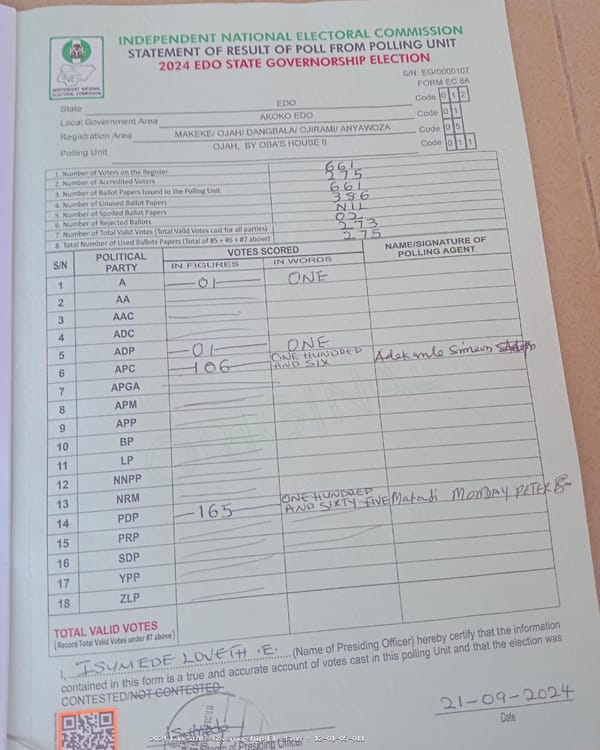 INDEPENDENT NATIONAL ELECTORAL COMMISSION
STATEMENT OF RESULT OF POLL FROM POLLING UNIT
2024 EDO STATE GOVERNORSHIP ELECTION
INDEPENDENT NATIONAL
ELECTORAL COMMISSION
S/N EG/0000107
FORM EC 8A
State EDO Code 0 1 2
Local Government Area AKOKO EDO Code 0 1
Registration Area MAKEKE/ OJAH/ DANGBALA/ OJIRAMI/ ANYAWOZA Code 0 5
Polling Unit OJAH, BY OBA'S HOUSE II Code 0 1 1
1. Number of Voters on the Register 661
2. Number of Accredited Voters 275
3. Number of Ballot Papers Issued to the Polling Unit 661
4. Number of Unused Ballot Papers 386
5. Number of Spoiled Ballot Papers NIL
6. Number of Rejected Ballots 02
7. Number of Total Valid Votes (Total Valid Votes cast for all parties) 273
8. Total Number of Used Ballots Papers (Total of #5 + #6 + #7 above) 275
S/N POLITICAL PARTY VOTES SCORED NAME/SIGNATURE OF POLLING AGENT
IN FIGURES IN WORDS
1 A 01 ONE
2 AA
3 AAC
4 ADC
5 ADP 01 ONE
6 APC 106 ONE HUNDRED AND SIX Adekunle Simeon
7 APGA
8 APM
9 APP
10 BP
11 LP
12 NNPP
13 NRM
14 PDP 165 ONE HUNDRED AND SIXTY-FIVE MONDAY PETER
15 PRP
16 SDP
17 YPP
18 ZLP
TOTAL VALID VOTES
(Record Total Valid Votes under #7 above)
I, ISUMEDE LOVETH .E. (Name of Presiding Officer) hereby certify that the information
contained in this form is a true and accurate account of votes cast in this polling Unit and that the election was
CONTESTED/NOT CONTESTED
21-09-2024
Date
of Presiding Officer